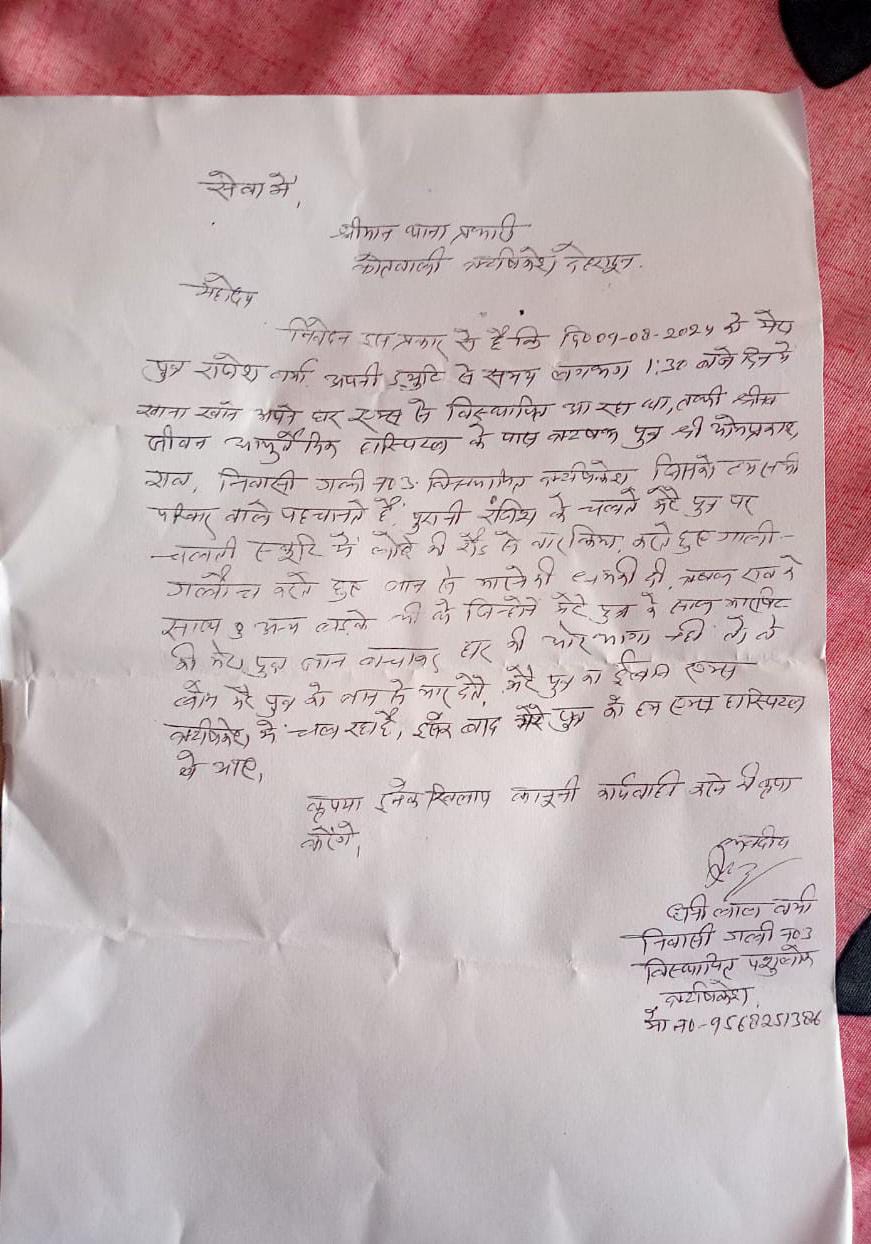 सेवा में,
श्रीमान थाना प्रभारी
कोतवाली ऋषिकेश देहरादून.
महोदय
निवेदन इस प्रकार से है कि दि0 09-08-2024 को मेरा
पुत्र वर्मा अपनी ड्युटि से समय लगभग 1:30 बजे दिन में
खाना खाने अपने घर एम्स से विस्थापित आ रहा था, तभी
जीवन आयुर्वेदिक हास्पिटल के पास ऋषभ पुत्र श्री ओमप्रकाश,
राव, निवासी गली न03 विस्थापित ऋषिकेश जिसको हम सभी
परिवार वाले पहचानते है. पुरानी रंजिश के चलते मेरे पुत्र पर
चलती स्कूटि में लोहे की रौड से वार किया, करते हुए गाली-
गलौच करते हुए जान से मारने की धमकी दी, ऋषभ राव के
साथ अन्य लड़के भी थे जिन्होने मेरे पुत्र के साथ मारपिट
की मेरा पुत्र जान बचाकर घर की ओर भागा नही तो, ये
लोग मेरे पुत्र को जान से मार देते, मेरे पुत्र का ईलाज एम्स
ऋषिकेश में चल रहा है, इसके बाद मेरे पुत्र को हम एम्स हास्पिटल
ले आए,
कृपया इनके खिलाप कानूनी कार्यवाही करने की कृपा
करेंगे,
भवदीय
लाल वर्मा
निवासी गली न03
विस्थापित पशुलोक
ऋषिकेश,
मो न0-9568251386